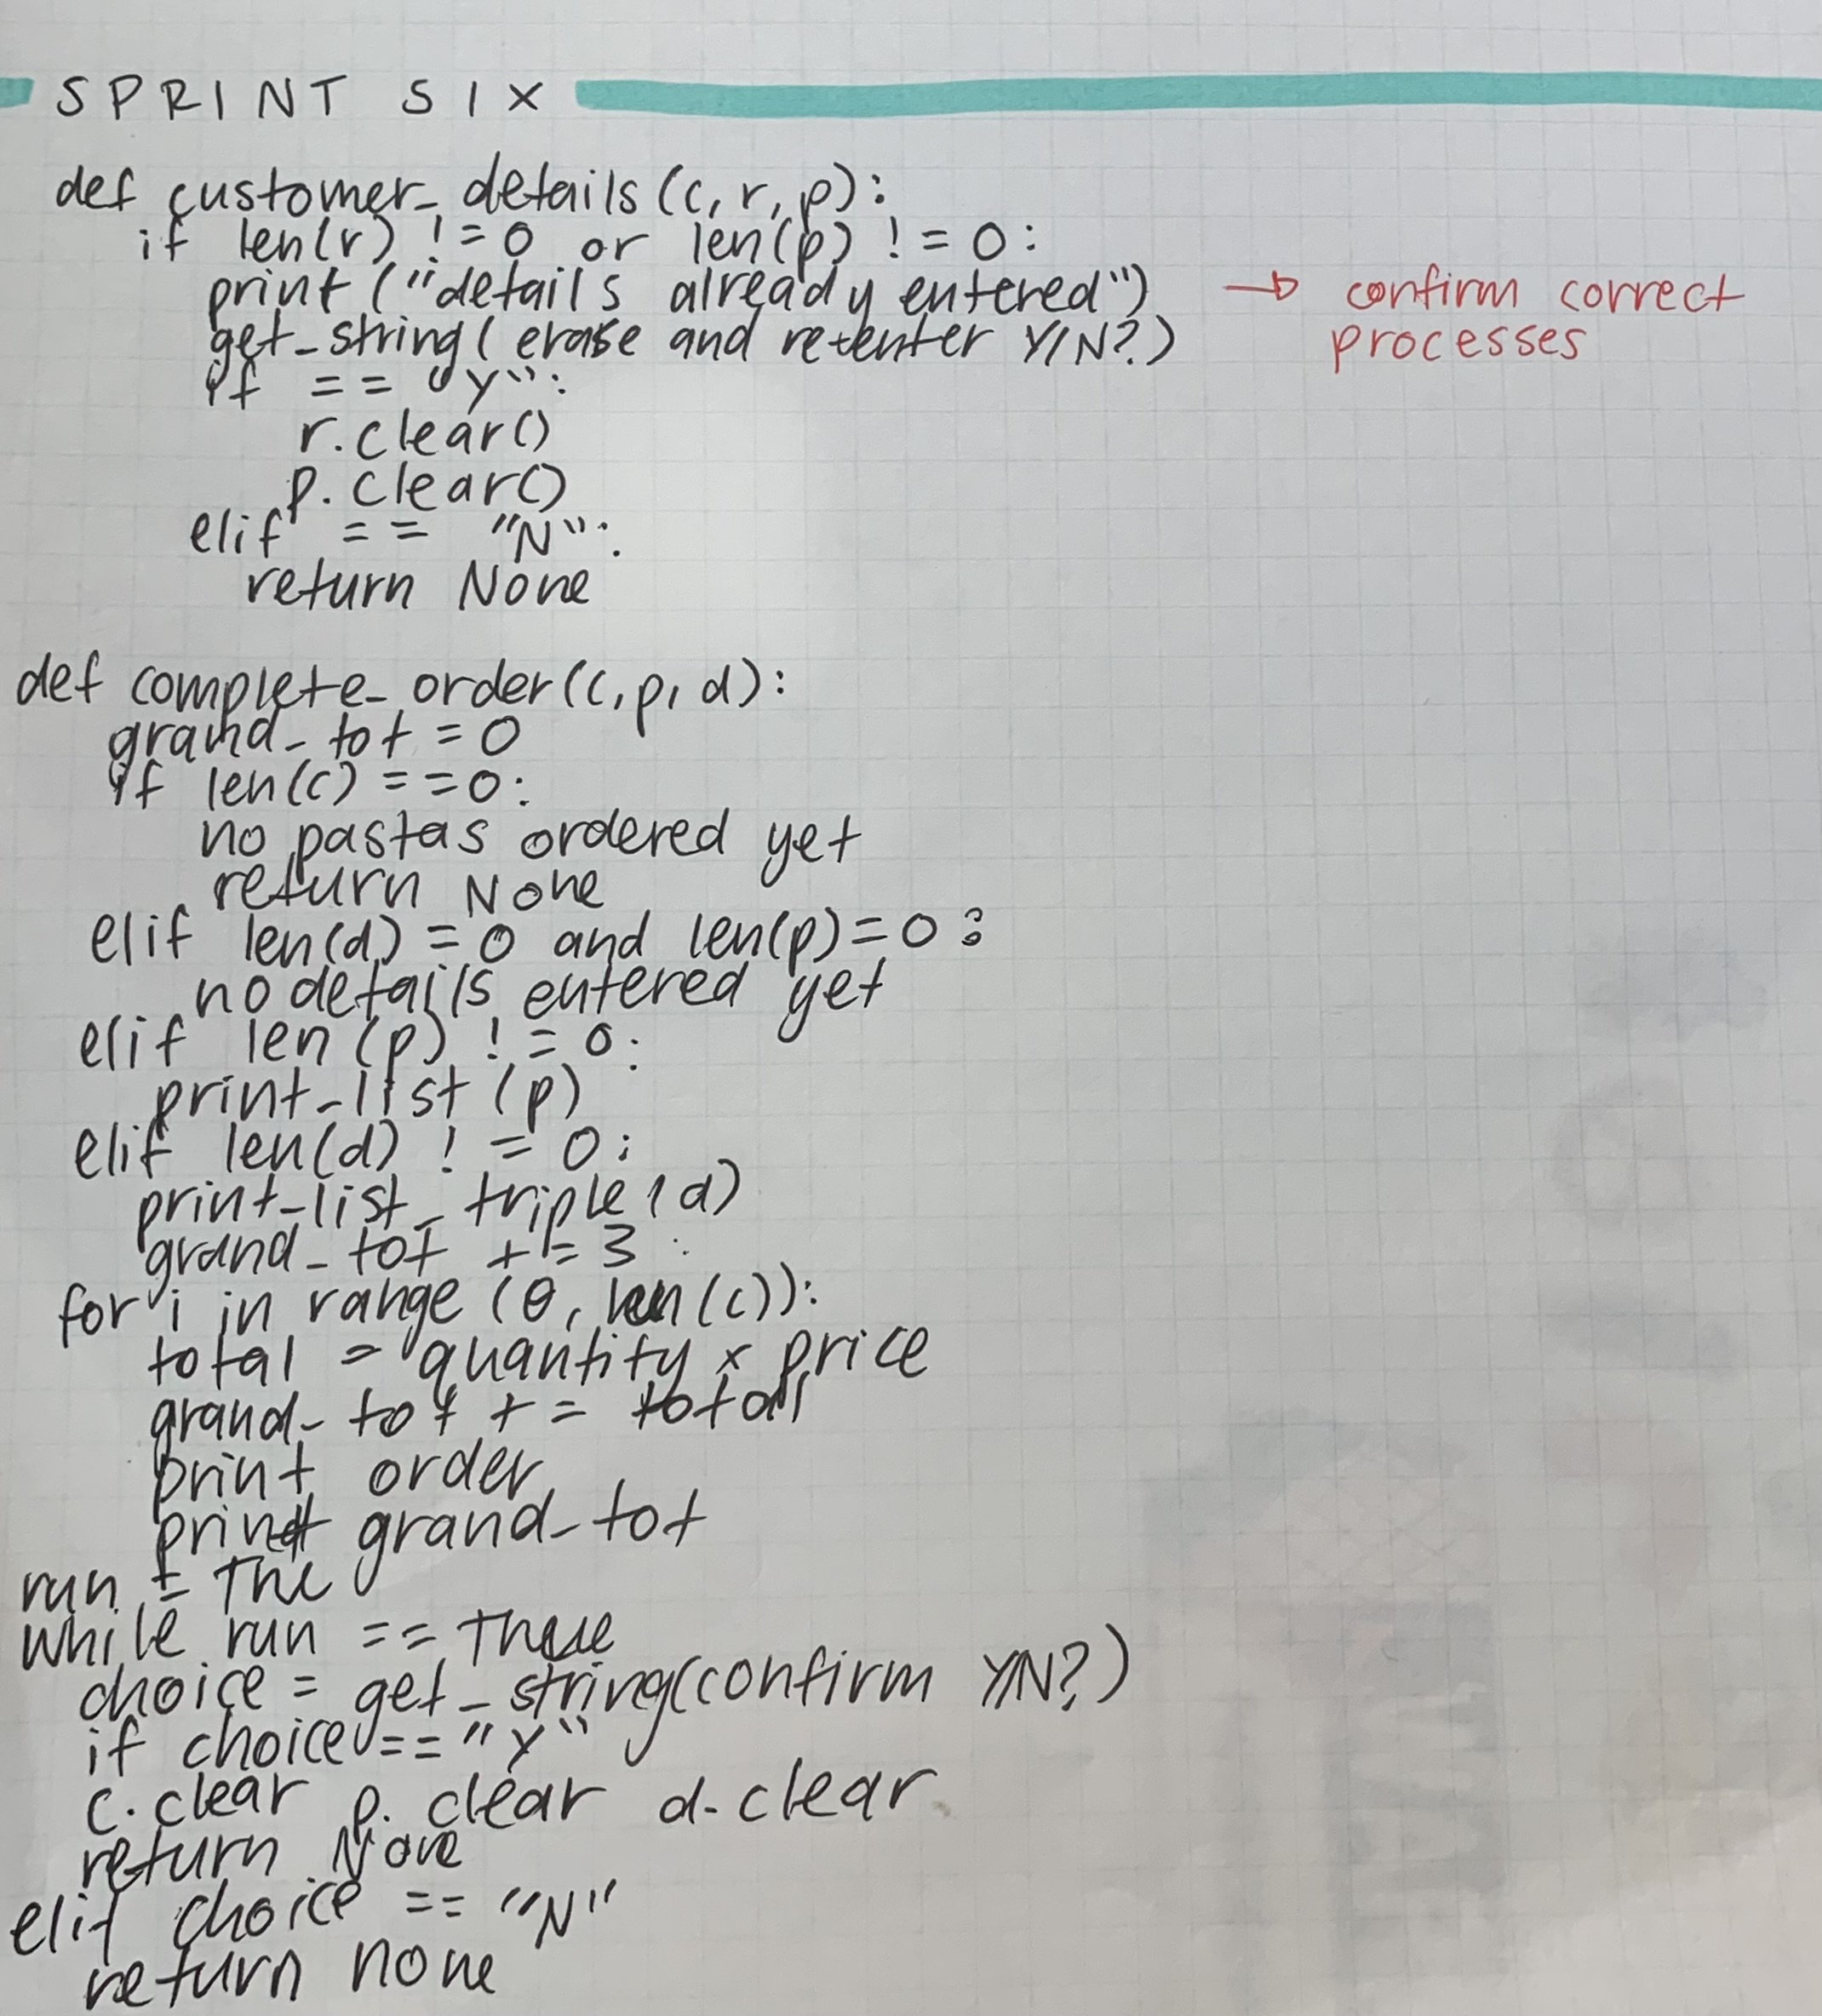 SPRINT SIX
def customer_details(c, r, p):
if len(r) != 0 or len(p) != 0:
print("details already entered") → confirm correct
get_string(erase and reenter Y/N?) processes
if == "Y":
r.clear()
p.clear()
elif == "N":
return None
def complete_order(c, p, d):
grand_tot = 0
if len(c) == 0:
no pastas ordered yet
return None
elif len(d) = 0 and len(p) = 0:
no details entered yet
elif len(p) != 0:
print_list(p)
elif len(d) != 0:
print_list_triple(d)
grand_tot += 3
for i in range(0, len(c)):
total = quantity x price
grand_tot += total
print order
print grand_tot
run = True
while run == True
choice = get_string(confirm Y/N?)
if choice == "Y"
c.clear p.clear d.clear
return None
elif choice == "N"
return none